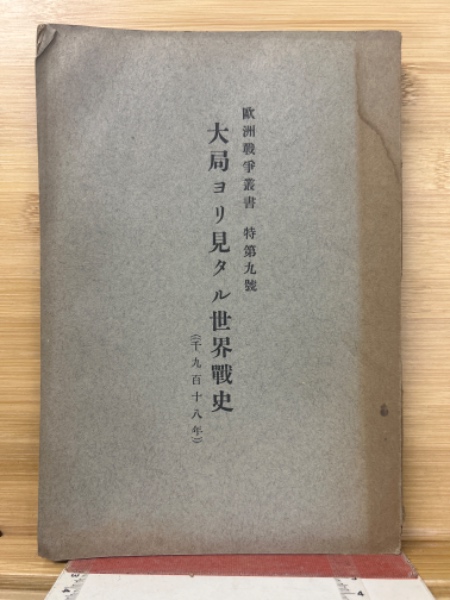 歐洲戰爭叢書 特第九號
大局ヨリ見タル世界戰史
(千九百十八年)